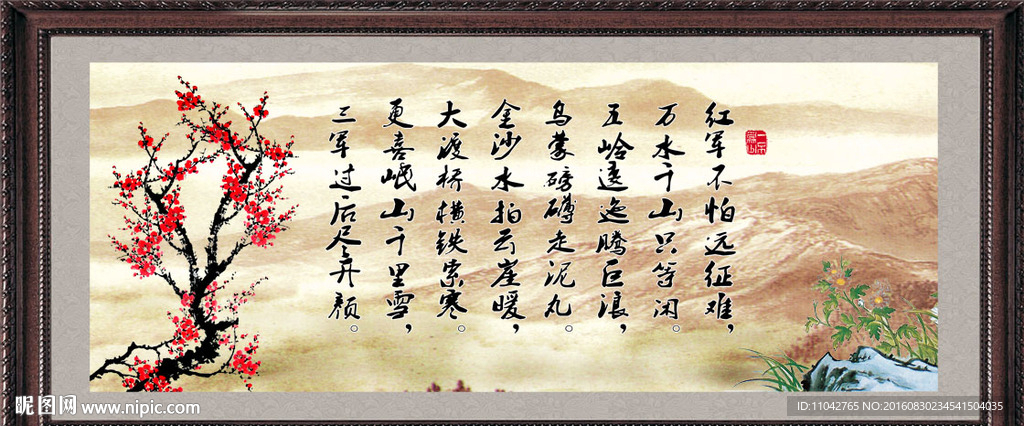 红军不怕远征难，
万水千山只等闲。
五岭逶迤腾巨浪，
乌蒙磅礴走泥丸。
金沙水拍云崖暖，
大渡桥横铁索寒。
更喜岷山千里雪，
三军过后尽开颜。
昵图网 www.nipic.com
ID:11042765 NO:20160830234541504035